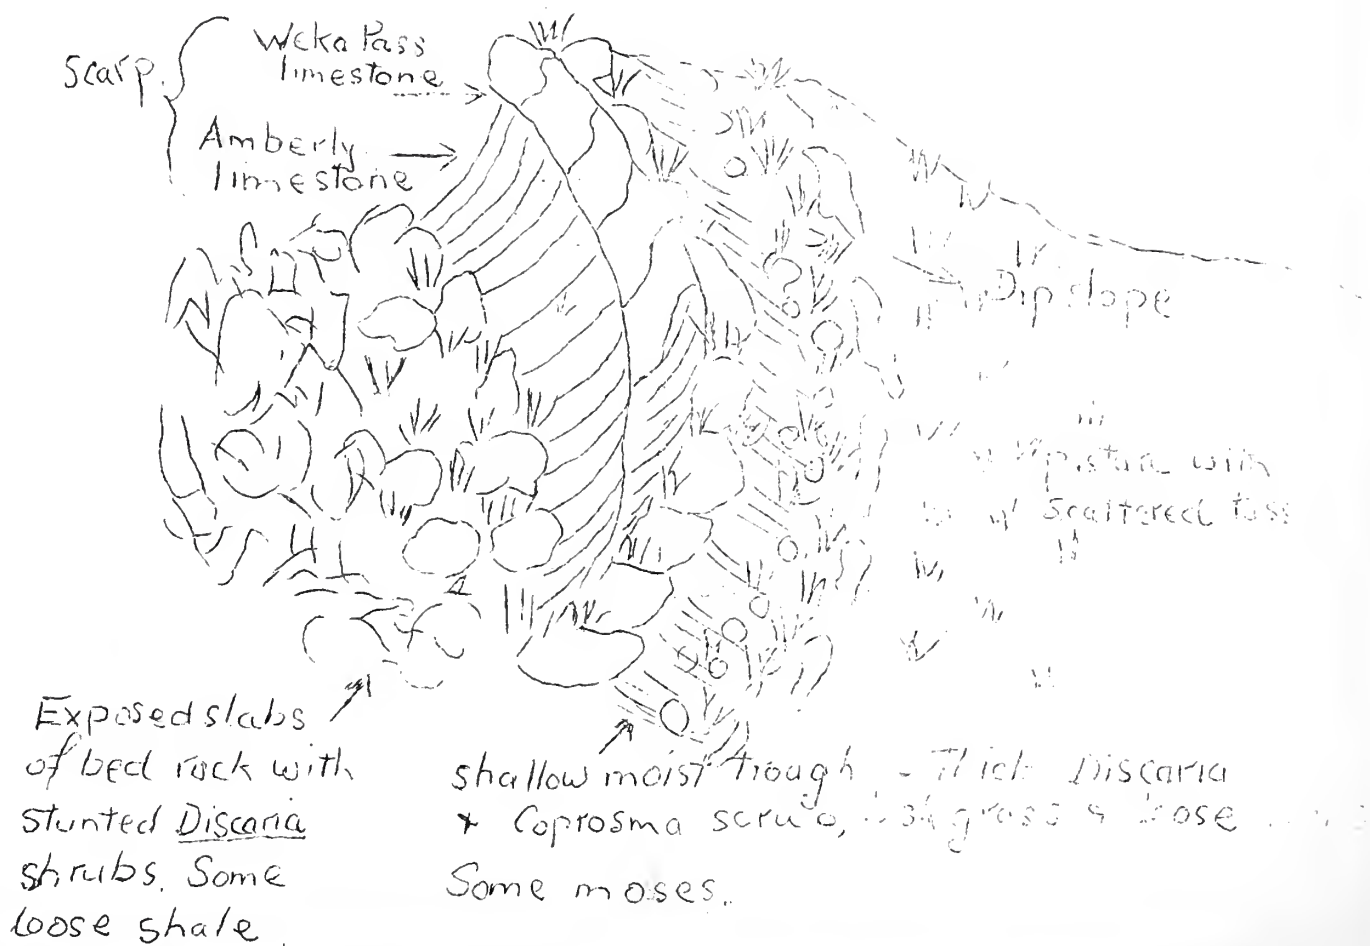 Scarp.
Weka Pass
limestone
Amberly
limestone
Dip slope
with
scattered tuss
Exposed slabs
of bed rock with
stunted Discaria
shrubs. Some
loose shale.
shallow moist trough - Thick Discaria
+ Coprosma scrub, grass &
Some moses.